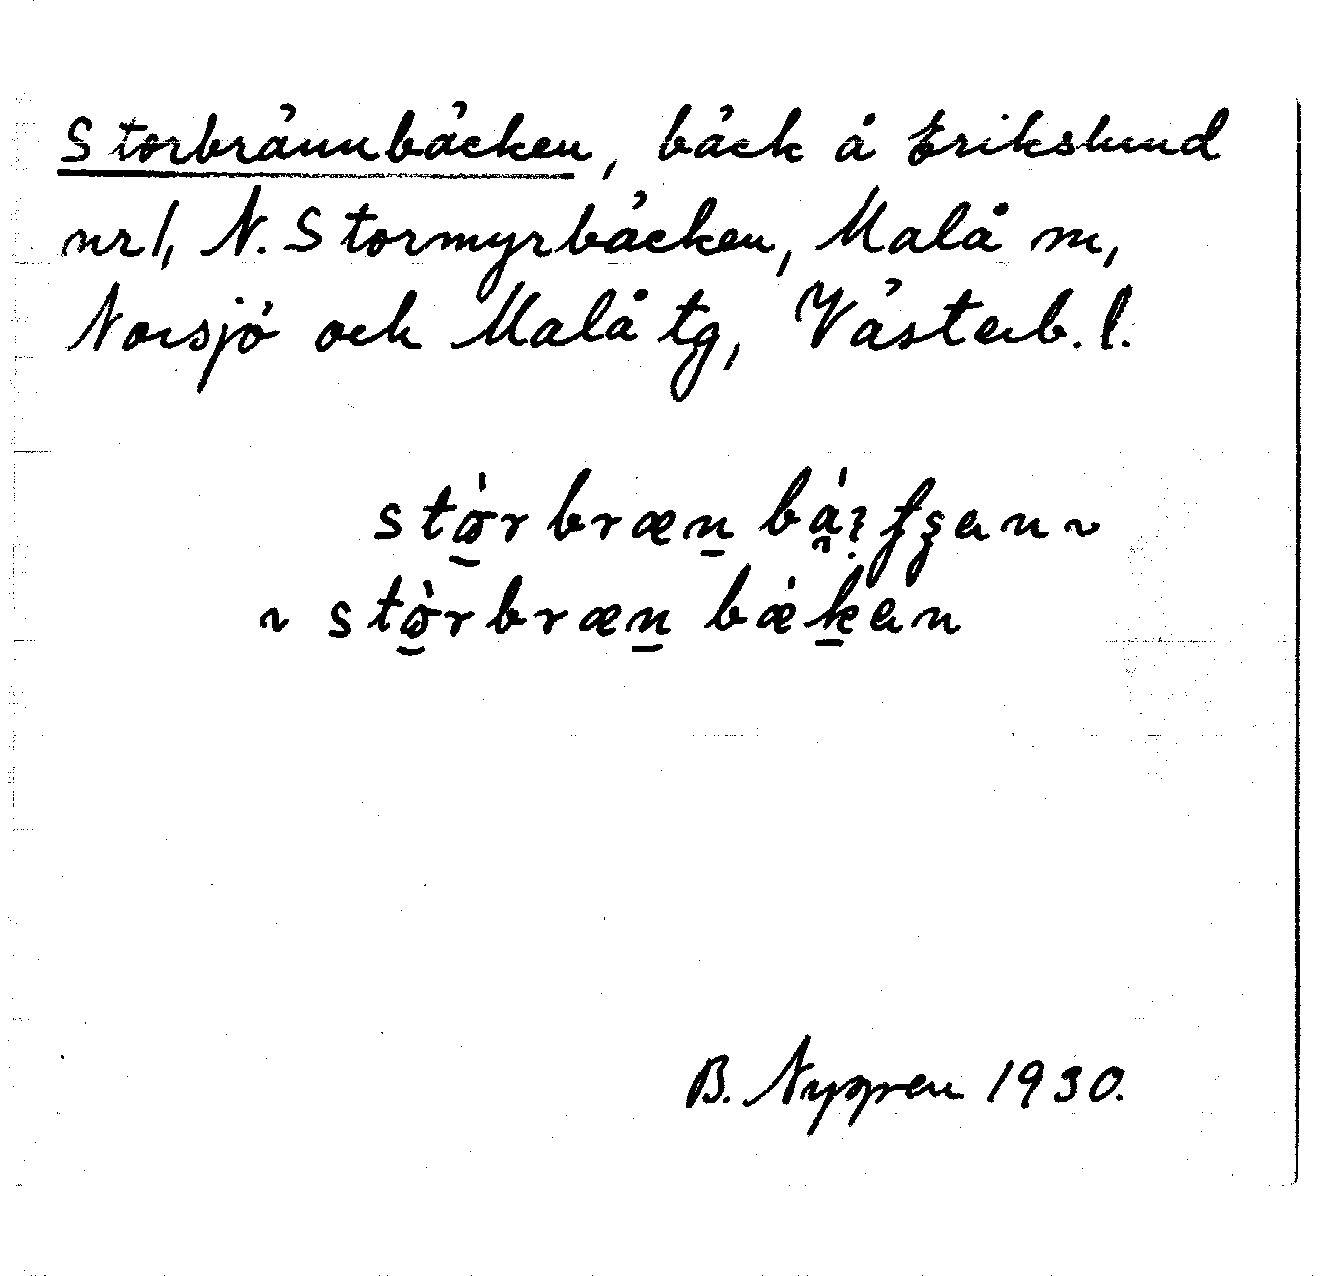 Storbrännbäcken, bäck å Erikslund
nr 1, N. Stormyrbäcken, Malå m,
Norsjö och Malå tg, Västerb. l.
~
~ stòrbræn bækən
B. Nygren 1930.